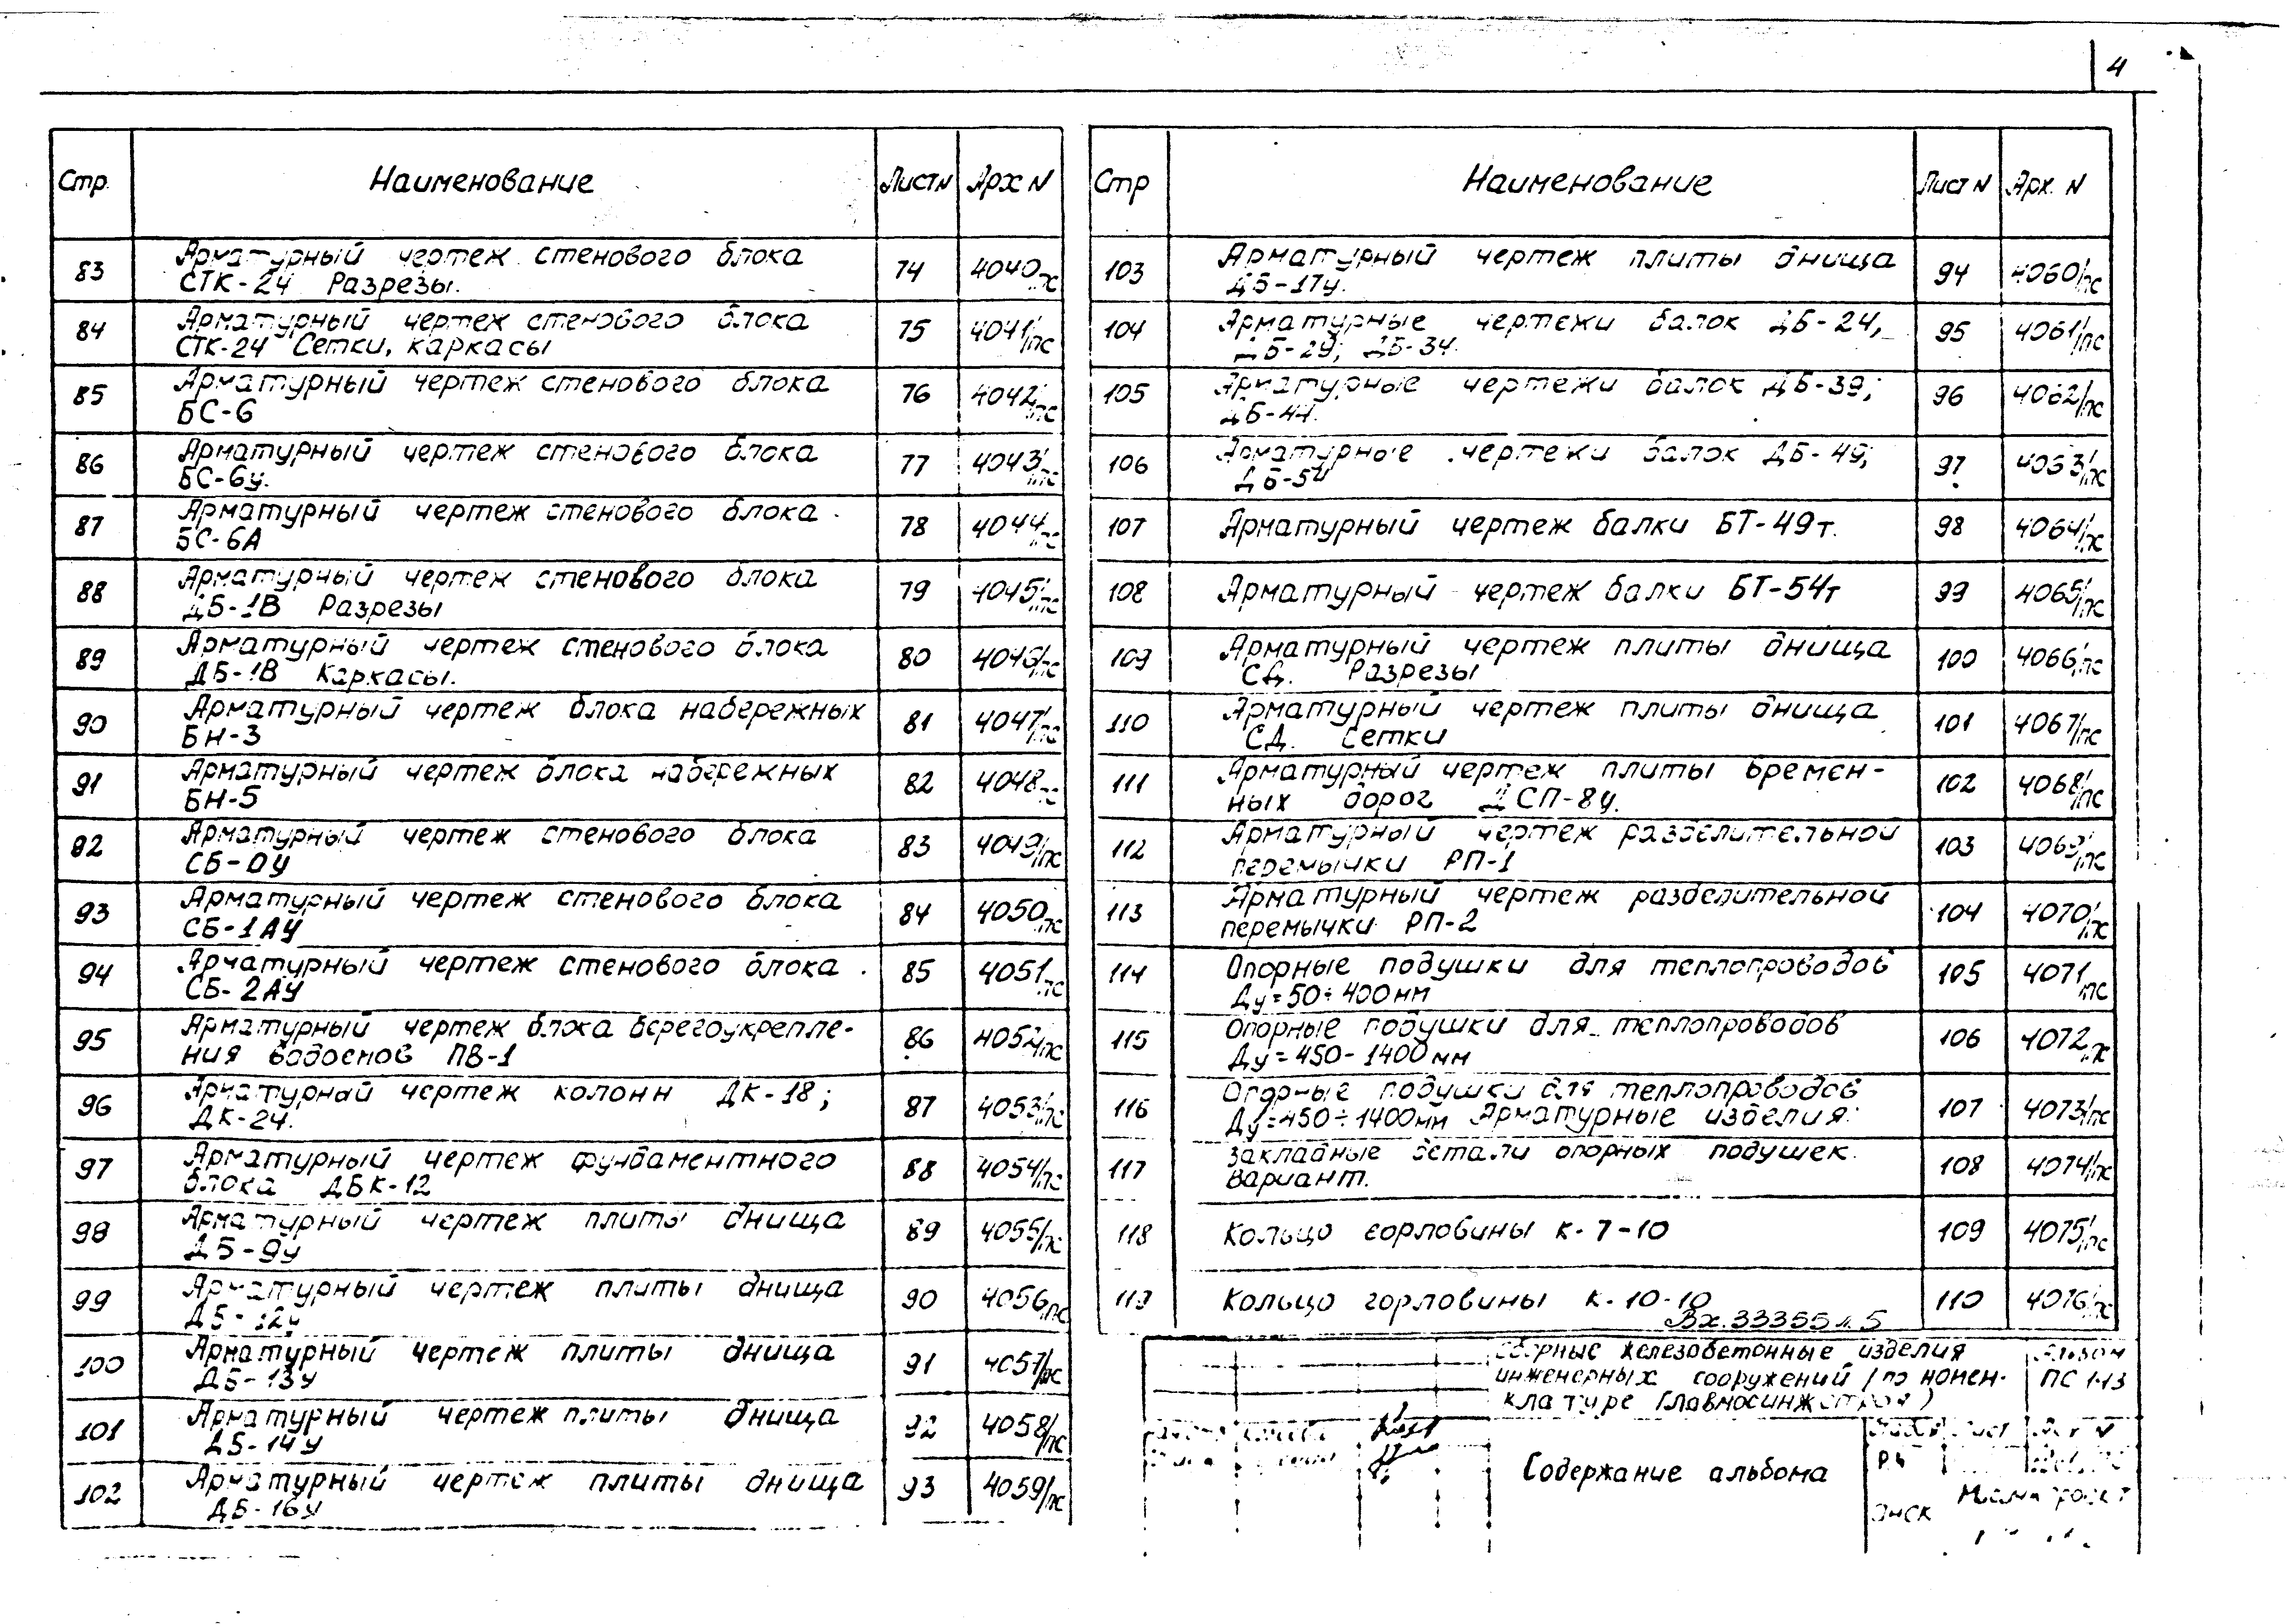 4
Стр. Наименование Лист N Арх N
83 Арматурный чертеж стенового блока 74 4040/пс
СТК-24 Разрезы.
84 Арматурный чертеж стенового блока 75 4041/пс
СТК-24 Сетки, каркасы
85 Арматурный чертеж стенового блока 76 4042/пс
БС-6
86 Арматурный чертеж стенового блока 77 4043/пс
БС-6у.
87 Арматурный чертеж стенового блока 78 4044/пс
БС-6А
88 Арматурный чертеж стенового блока 79 4045/пс
ДБ-1В Разрезы
89 Арматурный чертеж стенового блока 80 4046/пс
ДБ-1В Каркасы.
90 Арматурный чертеж блока набережных 81 4047/пс
БН-3
91 Арматурный чертеж блока набережных 82 4048/пс
БН-5
92 Арматурный чертеж стенового блока 83 4049/пс
СБ-0у
93 Арматурный чертеж стенового блока 84 4050/пс
СБ-1АУ
94 Арматурный чертеж стенового блока 85 4051/пс
СБ-2АУ
95 Арматурный чертеж блока берегоукрепле- 86 4052/пс
ния водоемов ПВ-1
96 Арматурный чертеж колонн ДК-18; 87 4053/пс
ДК-24.
97 Арматурный чертеж фундаментного 88 4054/пс
блока ДБК-12
98 Арматурный чертеж плиты днища 89 4055/пс
ДБ-9у
99 Арматурный чертеж плиты днища 90 4056/пс
ДБ-12у
100 Арматурный чертеж плиты днища 91 4057/пс
ДБ-13у
101 Арматурный чертеж плиты днища 92 4058/пс
ДБ-14у
102 Арматурный чертеж плиты днища 93 4059/пс
ДБ-16у
Стр Наименование Лист N Арх. N
103 Арматурный чертеж плиты днища 94 4060/пс
ДБ-17у.
104 Арматурные чертежи балок ДБ-24, 95 4061/пс
ДБ-29; ДБ-34.
105 Арматурные чертежи балок ДБ-39; 96 4062/пс
ДБ-44.
106 Арматурные чертежи балок ДБ-49; 97 4063/пс
ДБ-54
107 Арматурный чертеж балки БТ-49т. 98 4064/пс
108 Арматурный чертеж балки БТ-54т 99 4065/пс
109 Арматурный чертеж плиты днища 100 4066/пс
СД. Разрезы
110 Арматурный чертеж плиты днища 101 4067/пс
СД. Сетки
111 Арматурный чертеж плиты времен- 102 4068/пс
ных дорог ДСП-8у.
112 Арматурный чертеж разделительной 103 4069/пс
перемычки РП-1
113 Арматурный чертеж разделительной 104 4070/пс
перемычки РП-2
114 Опорные подушки для теплопроводов 105 4071/пс
Ду=50÷400мм
115 Опорные подушки для теплопроводов 106 4072/пс
Ду=450-1400мм
116 Опорные подушки для теплопроводов 107 4073/пс
Ду=450÷1400мм Арматурные изделия.
117 Закладные детали опорных подушек. 108 4074/пс
Вариант.
118 Кольцо горловины К-7-10 109 4075/пс
119 Кольцо горловины К-10-10 110 4076/пс
Вх.33355 л.5
Сборные железобетонные изделия Альбом
инженерных сооружений (по номен- ПС 1-13
клатуре Главмосинжстроя)
Содержание альбома